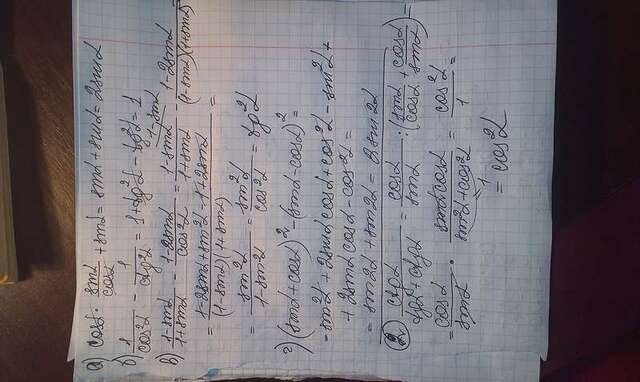 а) cosα · sinα/cosα + sinα = sinα + sinα = 2sinα
б) 1/cos²α − 1/ctg²α = 1 + tg²α − tg²α = 1
в) (1−sinα)/(1+sinα) − (1−2sinα)/cos²α = (1−sinα)/(1+sinα) − (1−2sinα)/((1−sinα)(1+sinα)) =
= (1−2sinα+sin²α−1+2sinα)/((1−sinα)(1+sinα)) =
= sin²α/(1−sin²α) = sin²α/cos²α = tg²α
г) (sinα+cosα)² − (sinα−cosα)² =
= sin²α + 2sinα cosα + cos²α − sin²α +
+ 2sinα cosα − cos²α =
= sin2α + sin2α = 2sin2α
2. ctgα/(tgα+ctgα) = cosα/sinα : (sinα/cosα + cosα/sinα) =
= cosα/sinα · sinα cosα/(sin²α+cos²α) = cos²α/1 =
= cos²α